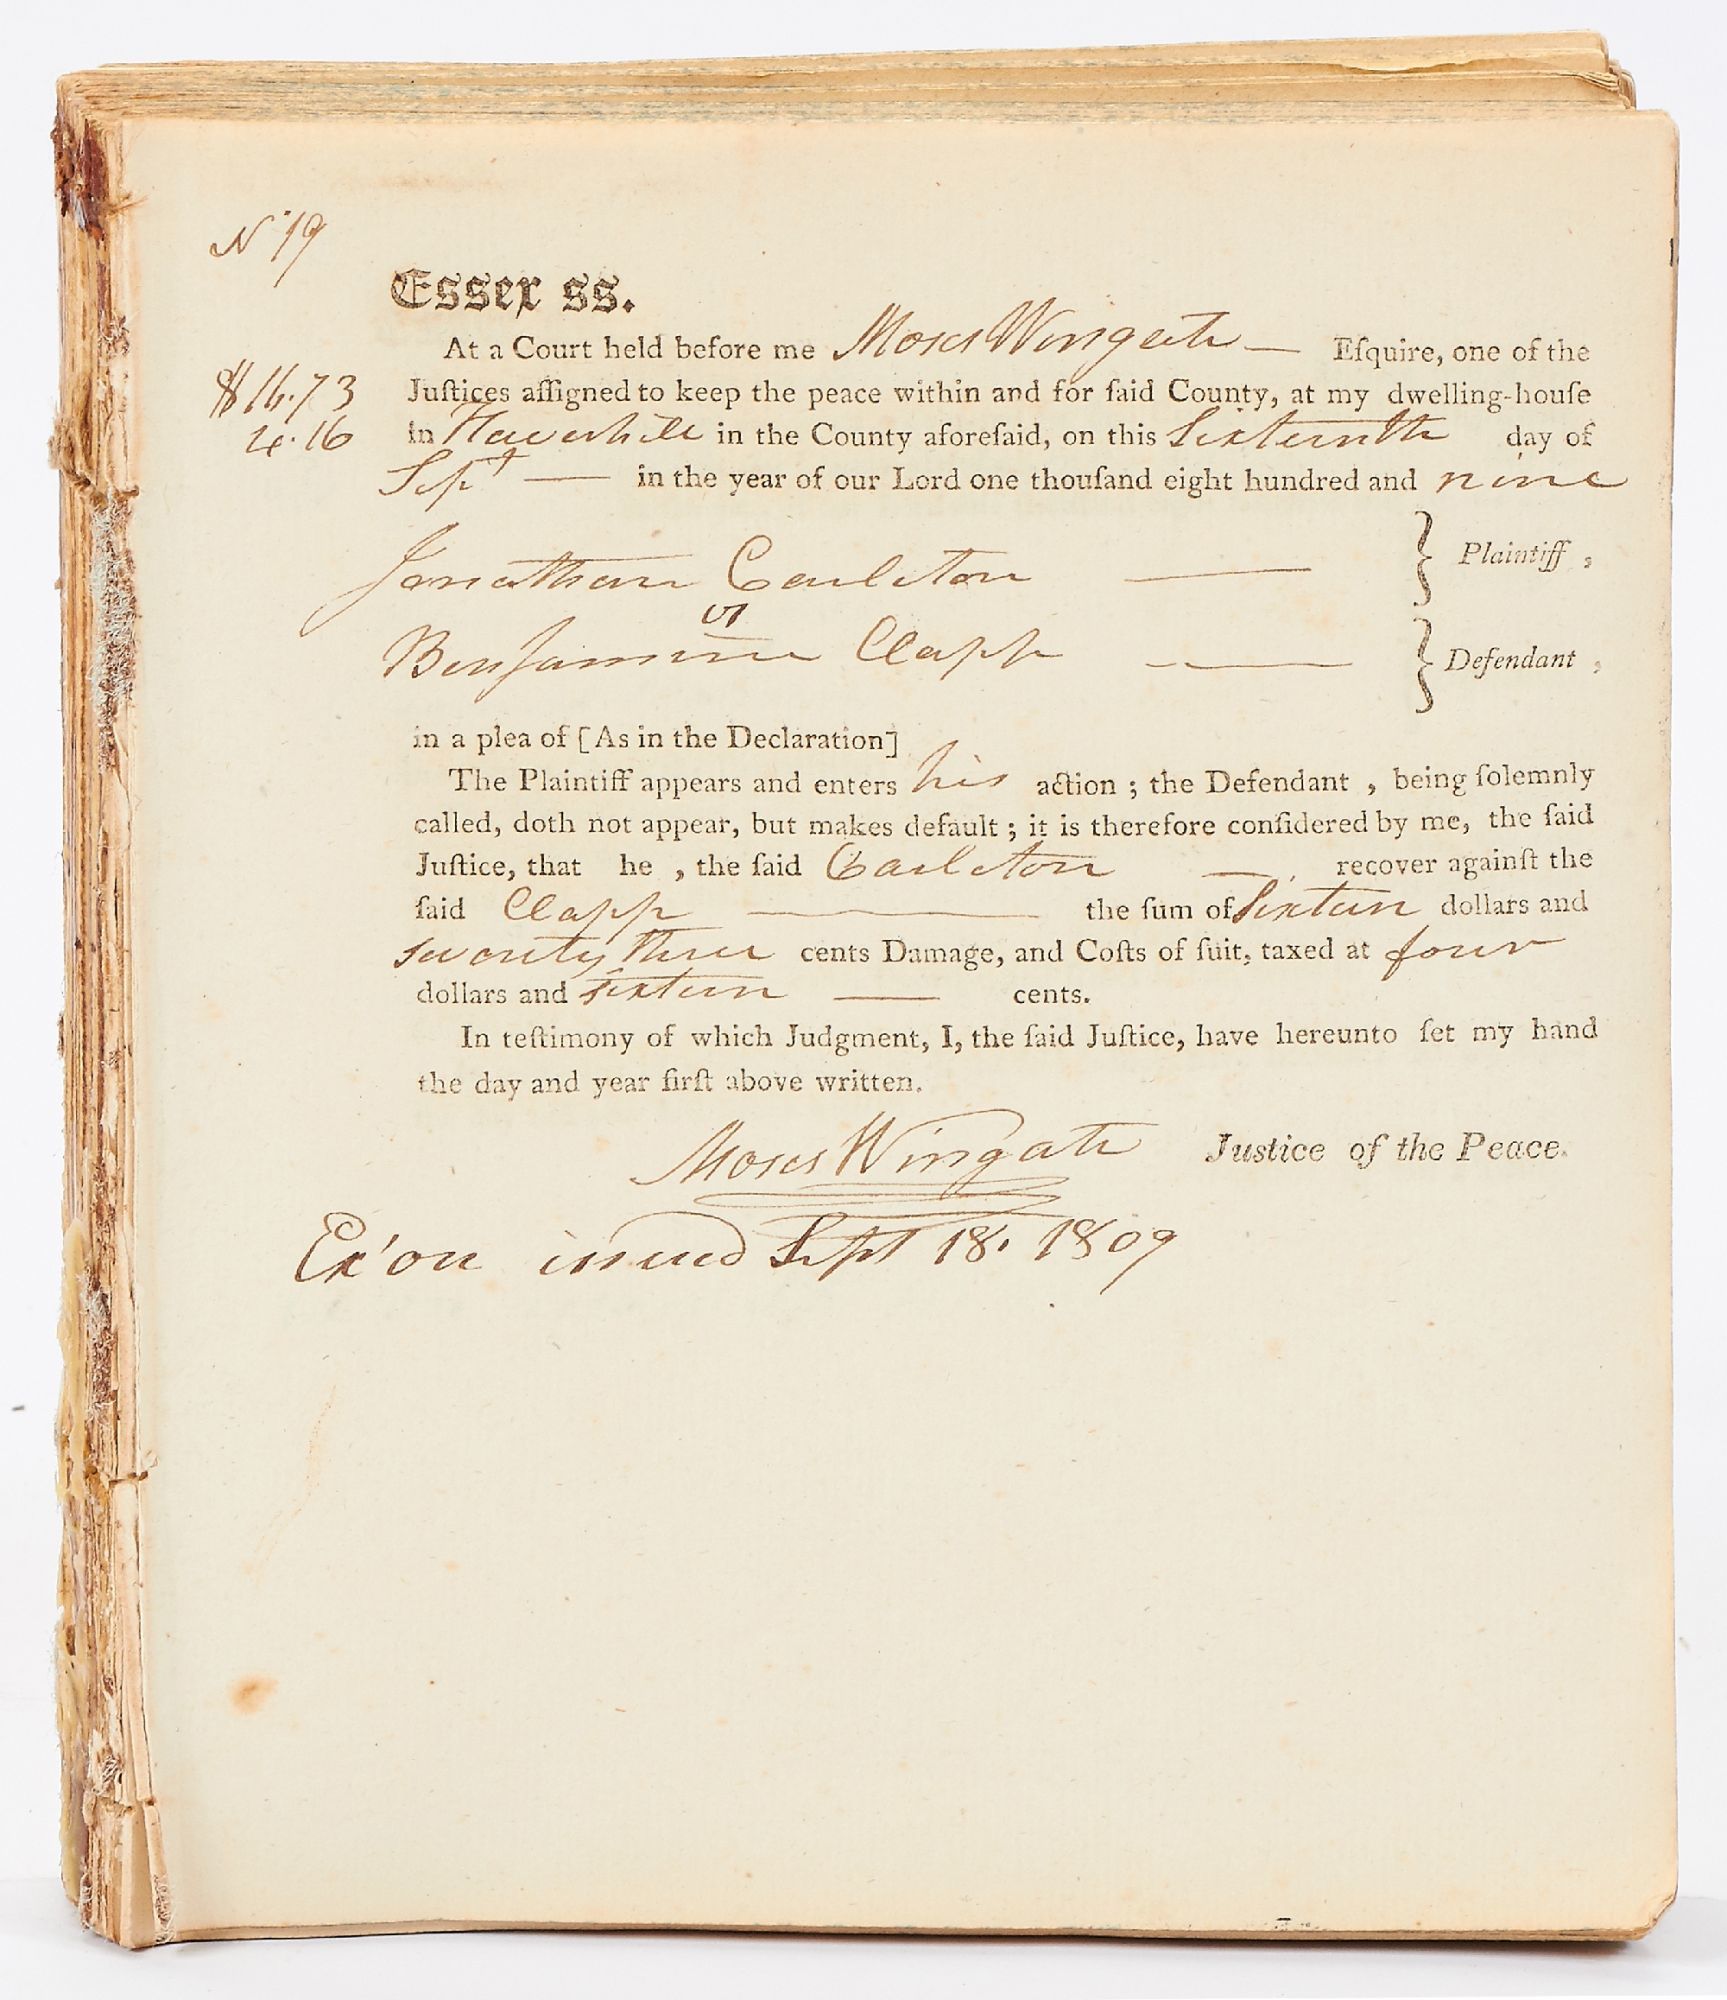 N° 19
Essex ss.
At a Court held before me Moses Wingate — Eſquire, one of the
$16.73
Juſtices aſſigned to keep the peace within and for ſaid County, at my dwelling-houſe
4.16
in Haverhill in the County aforeſaid, on this Sixteenth day of
Sept — in the year of our Lord one thouſand eight hundred and nine
Jonathan Carleton — } Plaintiff ,
vs
Benjamin Clapp — } Defendant ,
in a plea of [As in the Declaration]
The Plaintiff appears and enters his action ; the Defendant , being ſolemnly
called, doth not appear, but makes default ; it is therefore conſidered by me, the ſaid
Juſtice, that he , the ſaid Carleton — recover againſt the
ſaid Clapp — the ſum of Sixteen dollars and
seventy three cents Damage, and Coſts of ſuit, taxed at four
dollars and sixteen — cents.
In teſtimony of which Judgment, I, the ſaid Juſtice, have hereunto ſet my hand
the day and year firſt above written.
Moses Wingate Justice of the Peace.
Ex'on issued Sept 18. 1809